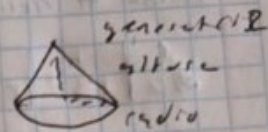 generatriz
altura
radio